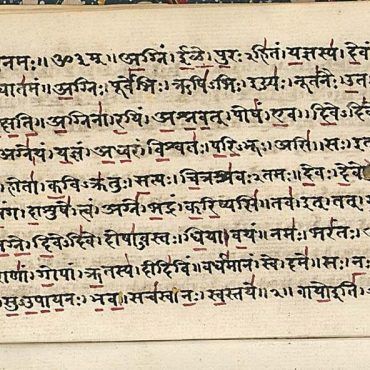 नमः॥ॐ३म्॥अग्निं।ईळे।पुरःऽहितं।यज्ञस्य।देवं
धातमं॥अग्निः।पूर्वेभिः।ऋषिऽभिः।ईड्यः।नूतनैः।उत
क्षति॥अग्निना।रयिं।अश्नवत्।पोषं।एव।दिवेऽदिवे
अग्ने।यं।यज्ञं।अध्वरं।विश्वतः।परिऽभूः।असि॥सः।इत्
होता।कविऽक्रतुः।सत्यः।चित्रश्रवःऽतमः॥देवः।देवे
अंग।दाशुषे।त्वं।अग्ने।भद्रं।करिष्यसि॥तव।इत्।तत्।
अग्ने।दिवेऽदिवे।दोषाऽवस्तः।धिया।वयं॥नमः।भरंतः।
राणां।गोपां।ऋतस्य।दीदिविं॥वर्धमानं।स्वे।दमे॥सः।नः
सुऽउपायनः।भव॥सचस्व।नः।स्वस्तये॥२॥वायो इति